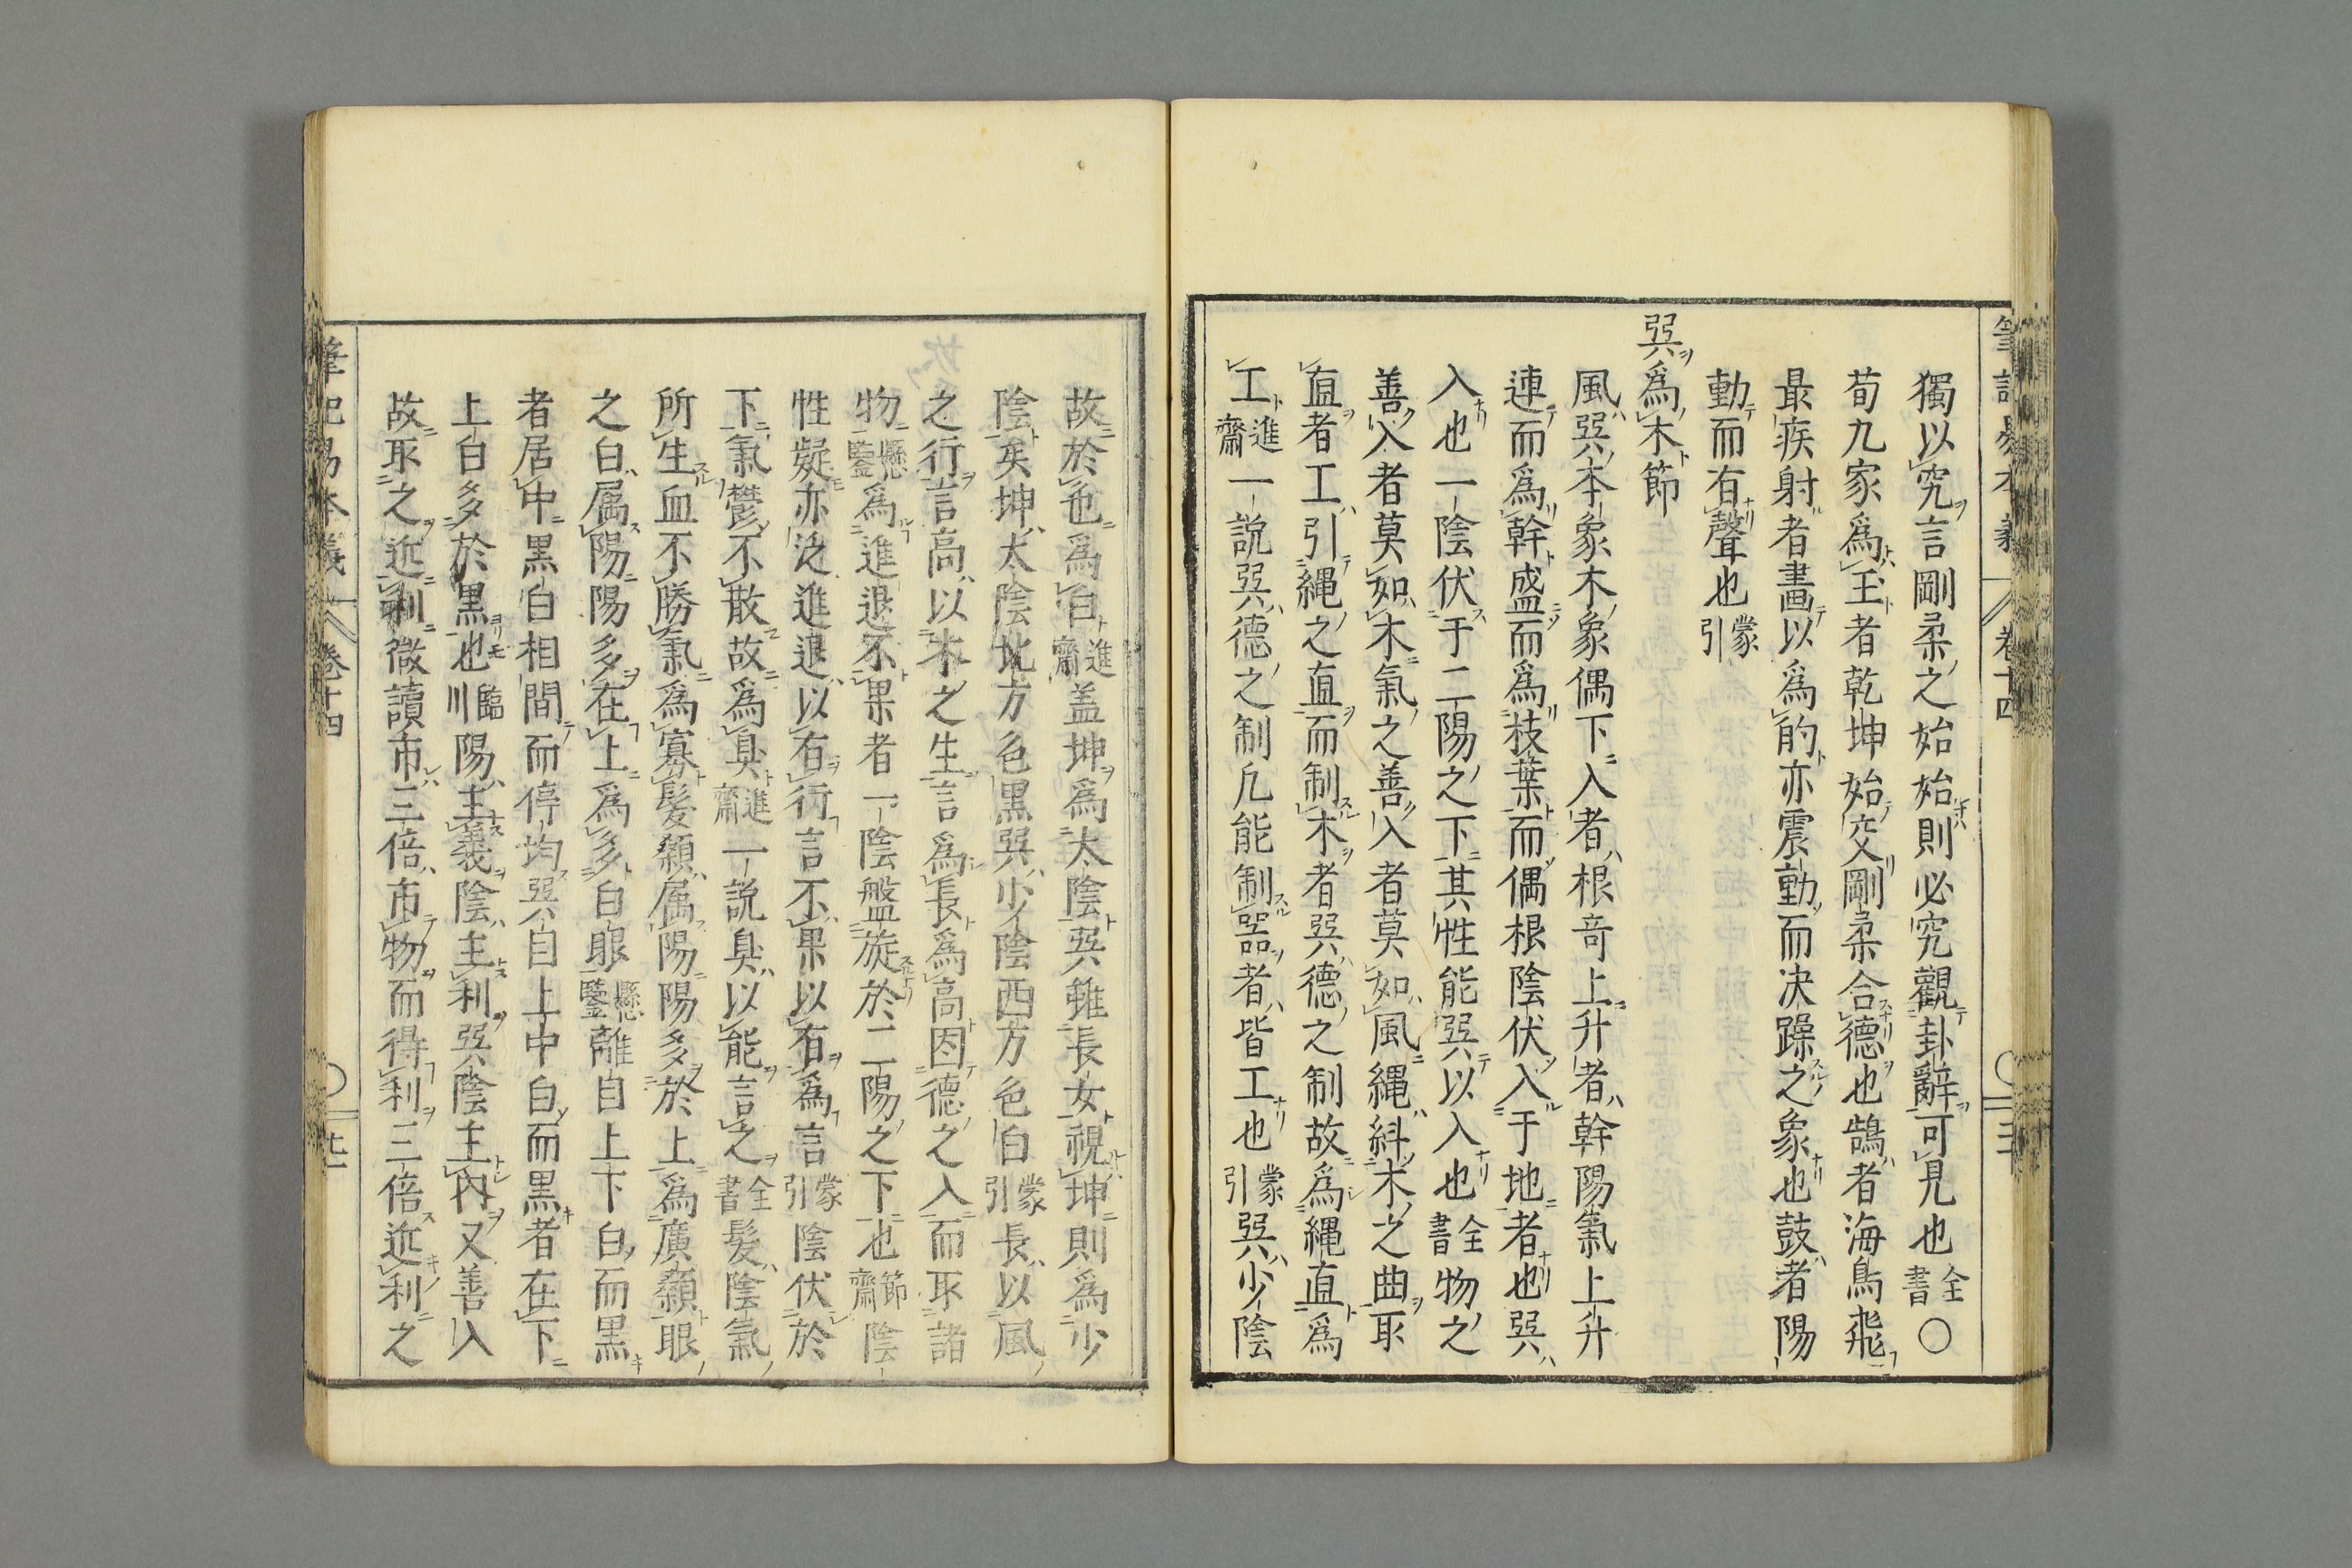 獨以究言剛柔之始始則必究觀卦辭可見也全書〇
荀九家爲王者乾坤始交剛柔合德也鵠者海鳥飛
最疾射者畫以爲的亦震動而決躁之象也鼓者陽
動而有聲也蒙引
巽爲木節
風巽本象木象偶下入者根竒上升者幹陽氣上升
連而爲幹盛而爲枝葉而偶根陰伏入于地者也巽
入也一陰伏于二陽之下其性能巽以入也全書物之
善入者莫如木氣之善入者莫如風繩糾木之曲取
直者工引繩之直而制木者巽德之制故爲繩直爲
工進齋一說巽德之制凡能制器者皆工也蒙引巽少陰
故於色爲白進齋盖坤爲太陰巽雖長女視坤則爲少
陰矣坤太陰北方色黒巽少陰西方色白蒙引長以風
之行言高以木之生言爲長爲高因德之入而取諸
物懸鑒爲進退不果者一陰盤旋於二陽之下也節齋陰
性疑亦泛進退以有行言不果以有爲言蒙引陰伏於
下氣鬱不散故爲臭進齋一說臭以能言之全書髮陰氣
所生血不勝氣爲寡髮顙属陽陽多於上爲廣顙眼
之白属陽陽多在上爲多白眼懸鑒離自上下白而黒
者居中黒白相間而停均巽自上中白而黒者在下
上白多於黒也臨川陽主義陰主利巽陰主內又善入
故取之近利徵讀市三倍市物而得利三倍近利之
筆記易本義 卷十四